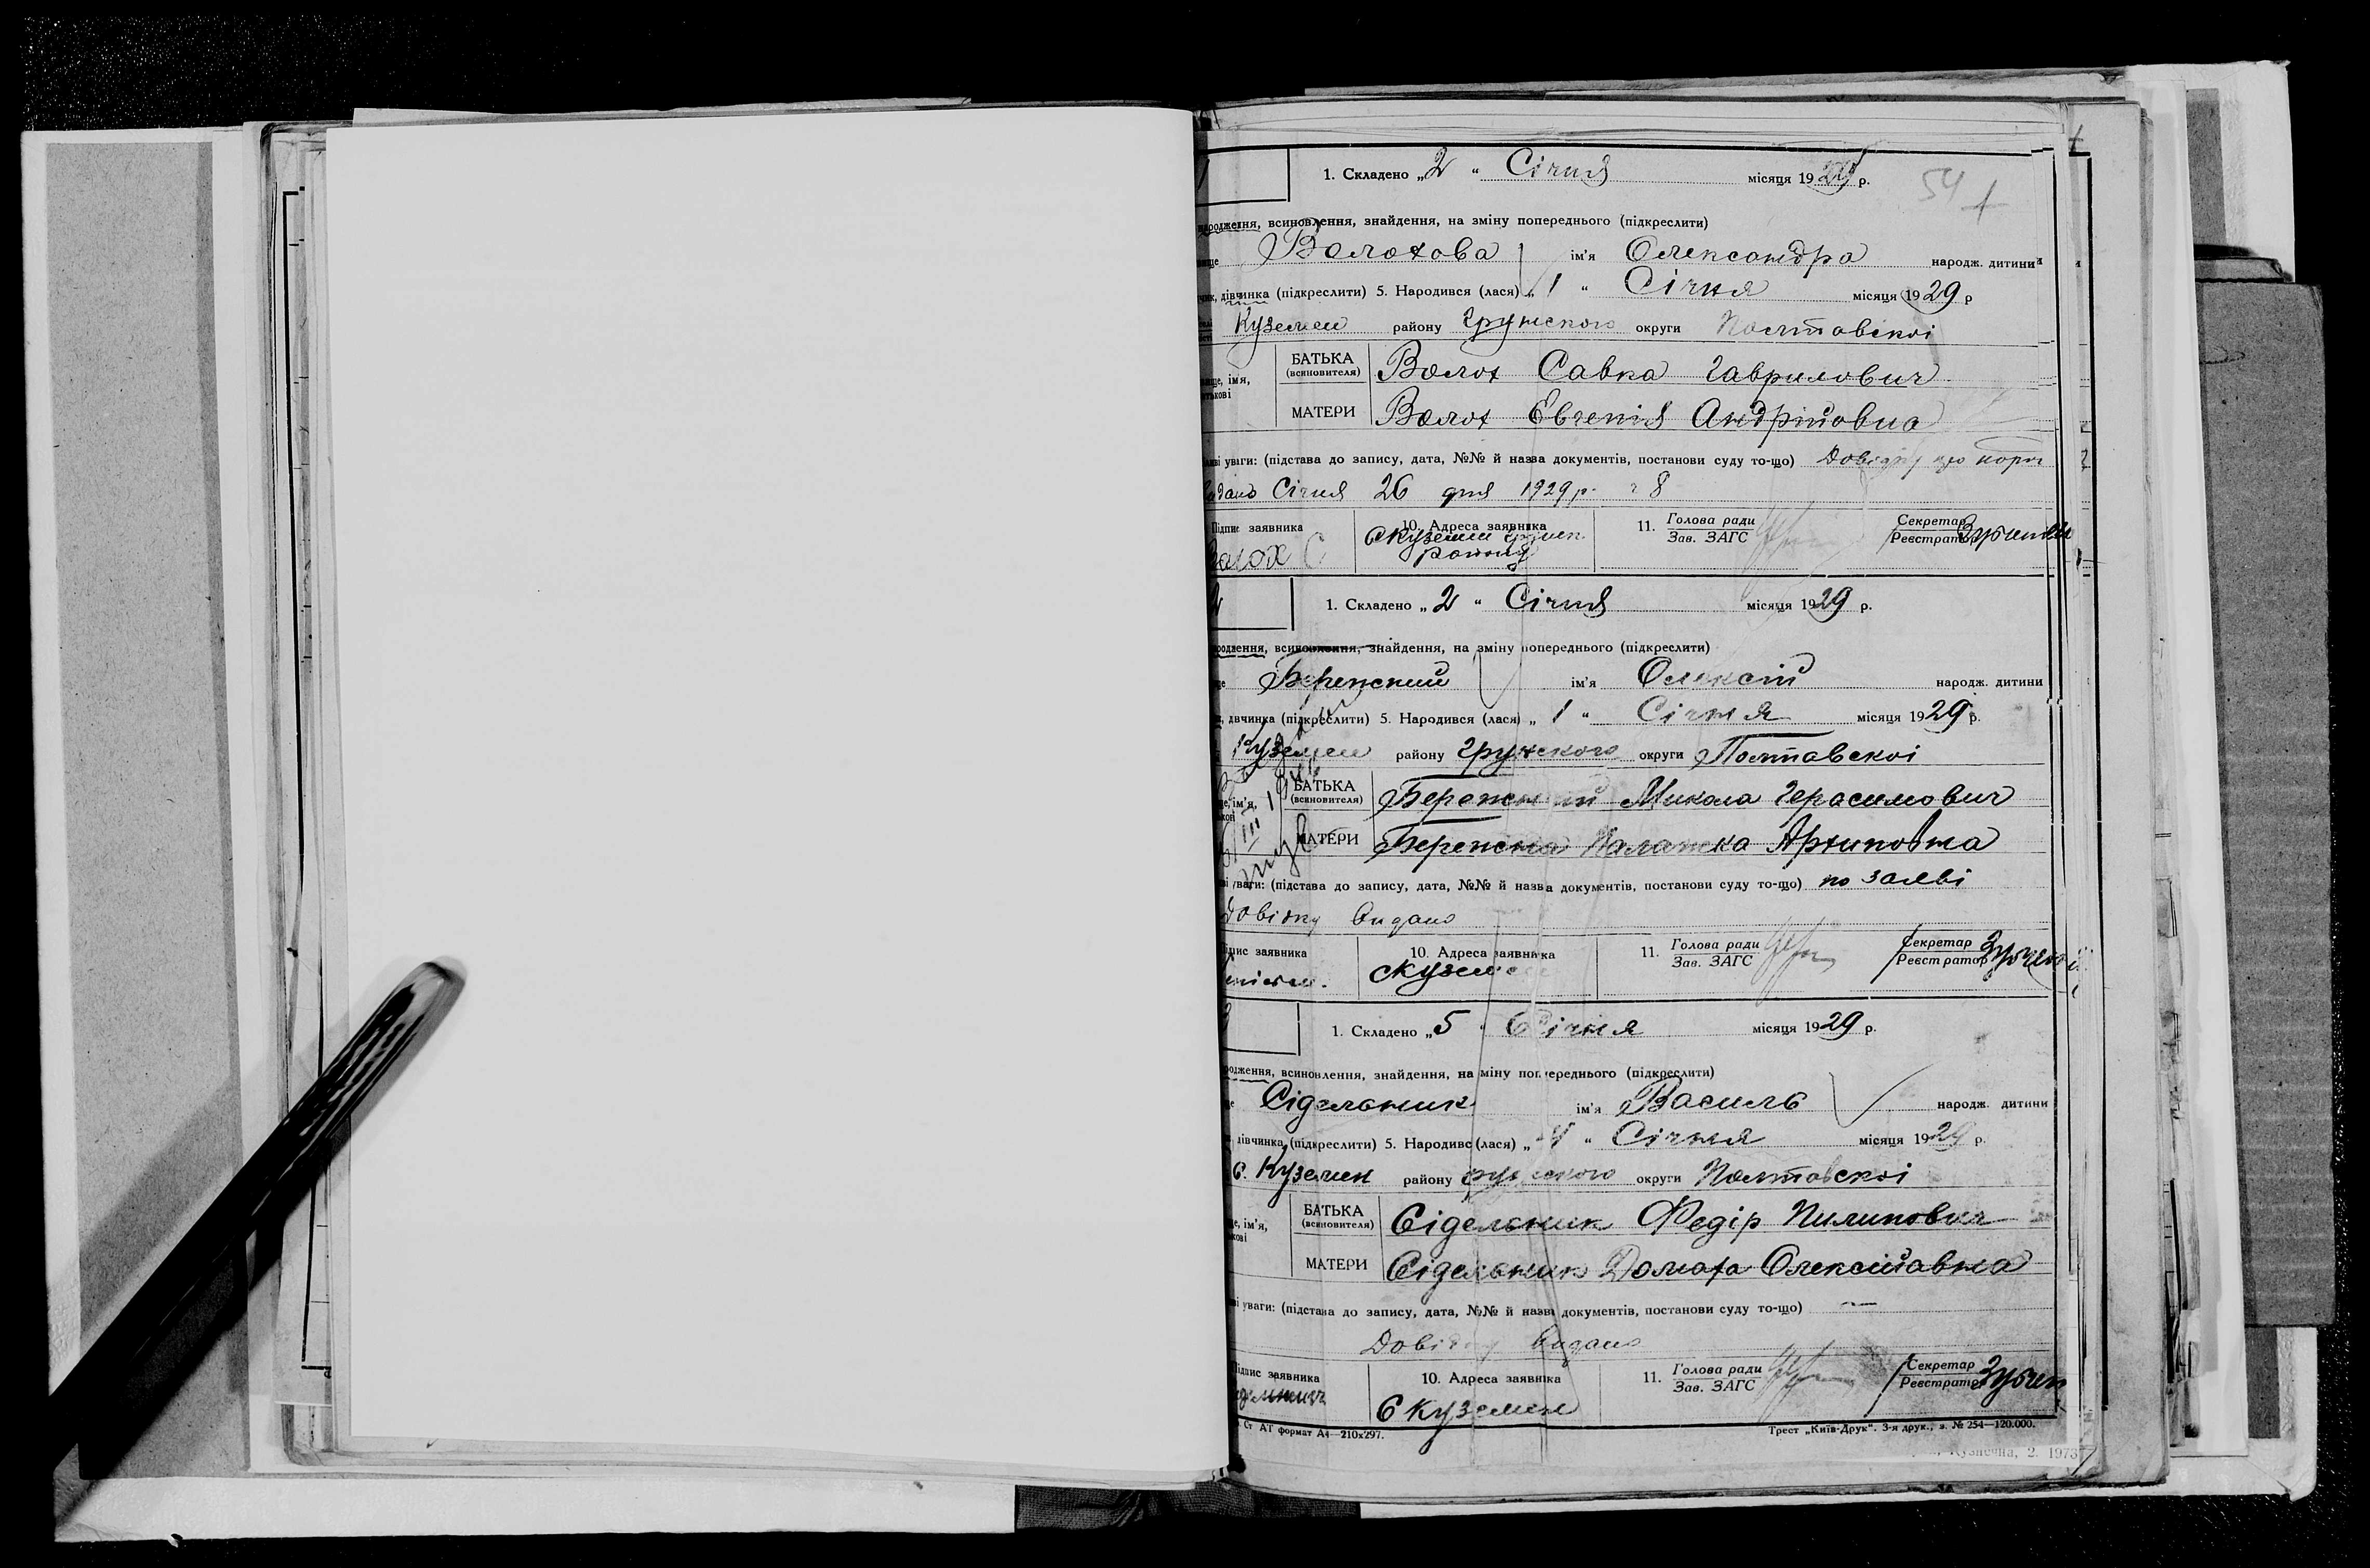 1. Складено „2“ Січня місяця 1929 р.
54
народження, всиновлення, знайдення, на зміну попереднього (підкреслити)
Волохова ім'я Олександра народж. дитини
дівчинка (підкреслити) 5. Народився (лася) „1“ Січня місяця 1929 р
Куземен району Грунського округи Полтавскоі
БАТЬКА
(всиновителя) Волох Савка Гаврилович
ім'я,
МАТЕРИ Волох Евгенія Андрійовна
уваги: (підстава до запису, дата, №№ й назва документів, постанови суду то-що) Довідку про
Січня 26 дня 1929 р. 8
Підпис заявника 10. Адреса заявника 11. Голова ради Секретар
Зав. ЗАГС Реєстратор
Волох С с Куземен
району
2
1. Складено „2“ Січня місяця 1929 р.
всиновлення, знайдення, на зміну попереднього (підкреслити)
Бережний ім'я Олексій народж. дитини
дівчинка (підкреслити) 5. Народився (лася) „1“ Січня місяця 1929 р.
Куземен району Грунського округи Полтавскоі
БАТЬКА
(всиновителя) Бережний Микола Герасимович
ім'я,
МАТЕРИ Бережна Палажка Архиповна
уваги: (підстава до запису, дата, №№ й назва документів, постанови суду то-що) по заяві
Довідку видано
Підпис заявника 10. Адреса заявника 11. Голова ради Секретар
Зав. ЗАГС Реєстратор
с Куземен
3
1. Складено „5“ Січня місяця 1929 р.
всиновлення, знайдення, на зміну попереднього (підкреслити)
Сідельник ім'я Василь народж. дитини
дівчинка (підкреслити) 5. Народився (лася) „4“ Січня місяця 1929 р.
с. Куземен району Грунського округи Полтавскоі
БАТЬКА
(всиновителя) Сідельник Федір Пилипович
ім'я,
МАТЕРИ Сідельник Домаха Олексійавна
уваги: (підстава до запису, дата, №№ й назва документів, постанови суду то-що) —
Довідку видано
Підпис заявника 10. Адреса заявника 11. Голова ради Секретар
Зав. ЗАГС Реєстратор
с Куземен
Ст АТ формат А4—210х297. Трест „Київ-Друк“. 3-я друк., з. № 254—120.000.
Кузнечна, 2. 1973